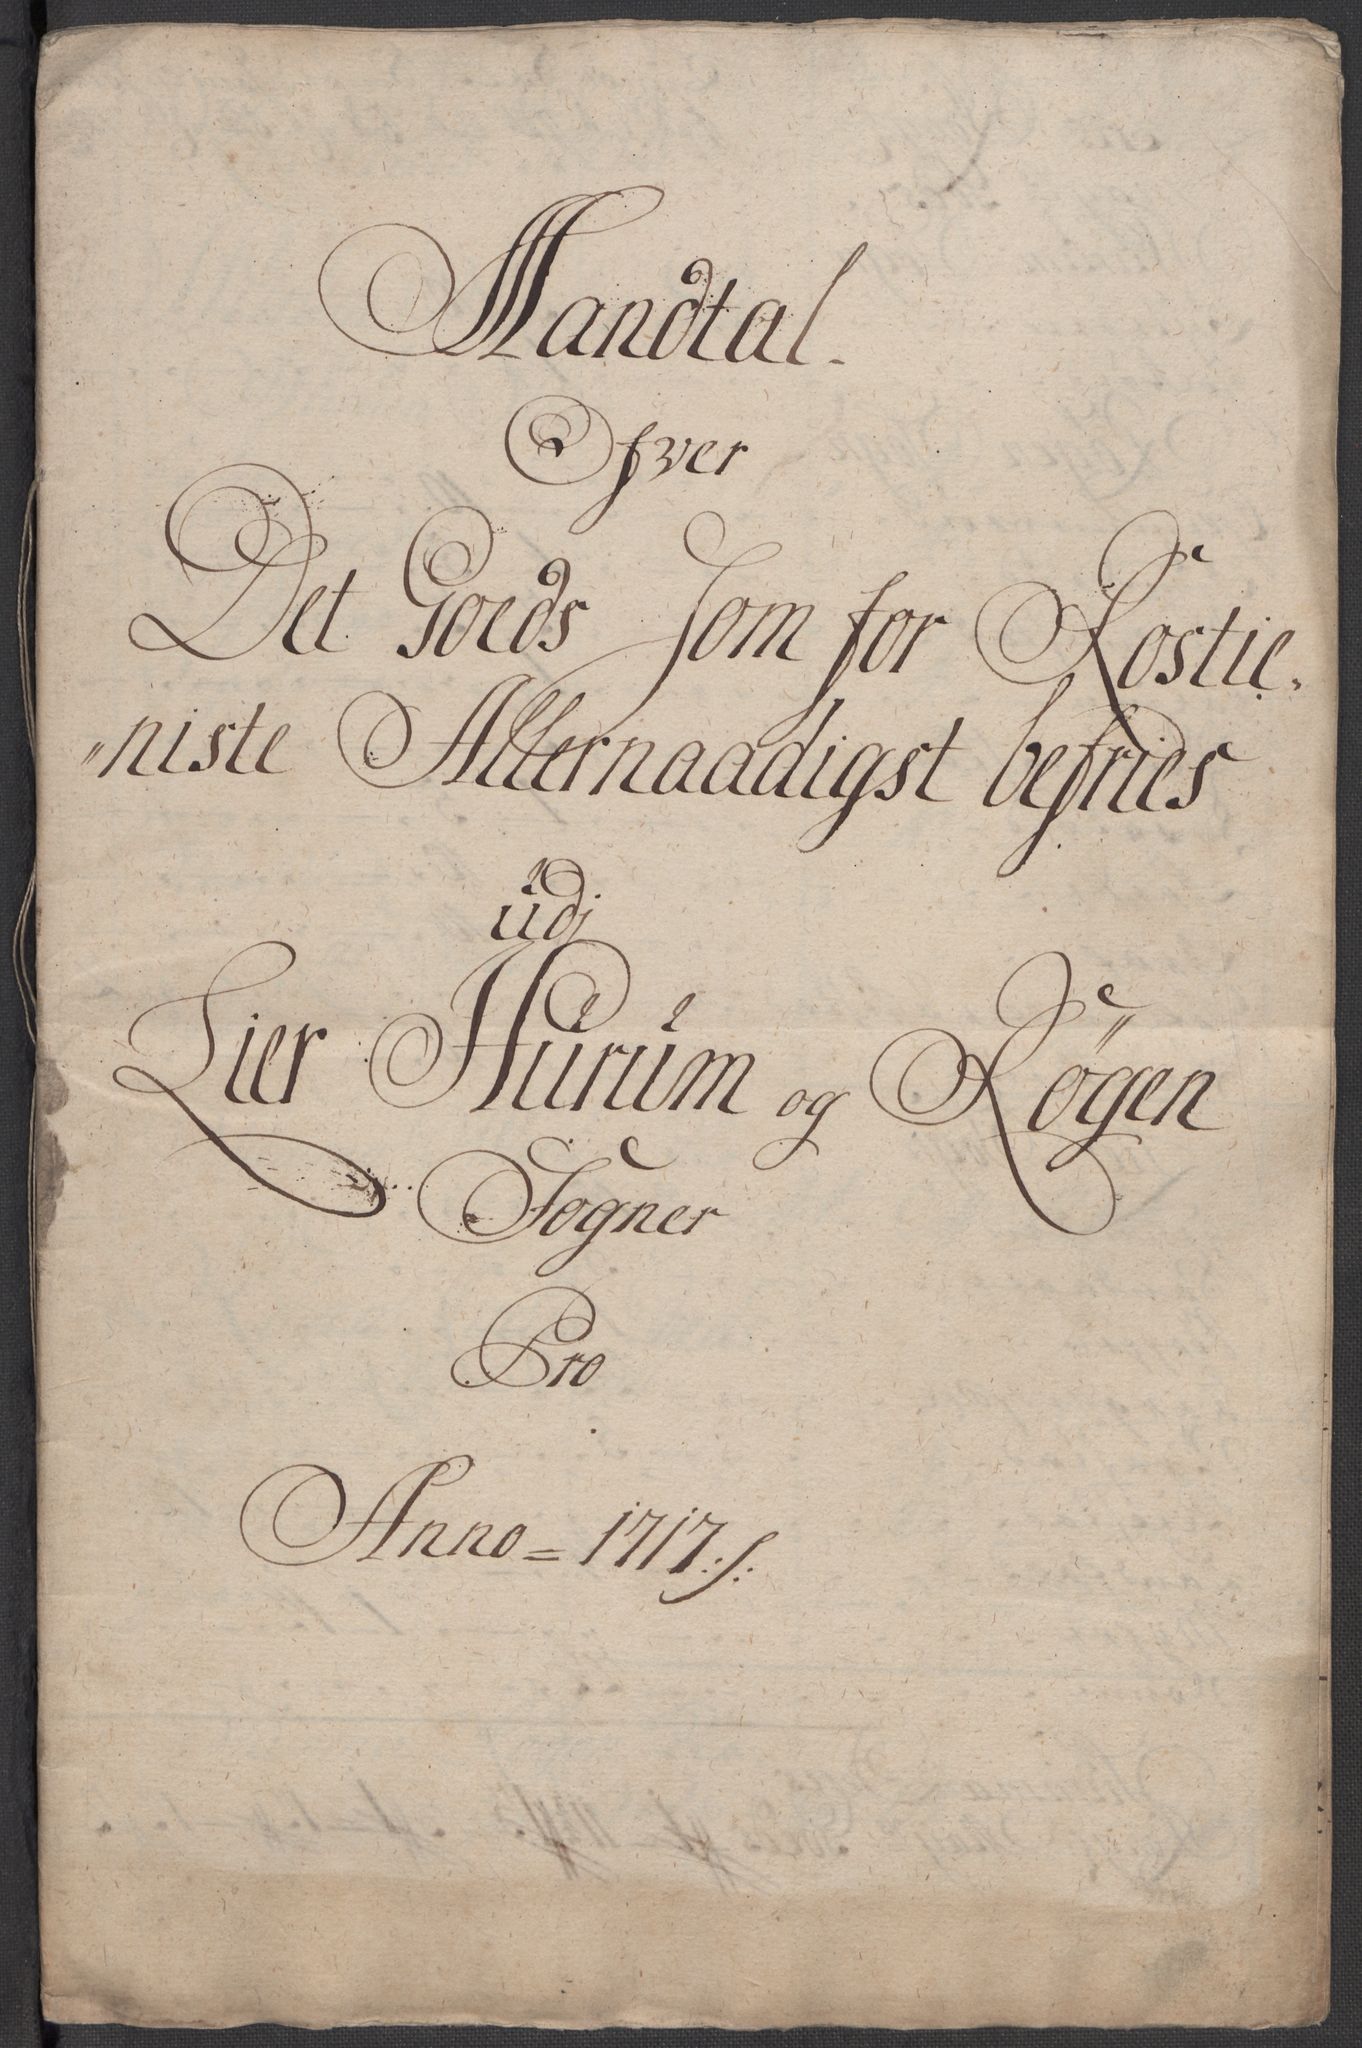 Mandtal.
Ofver
Det Goeds Som for Rostie,
„niste Allernaadigst befries
udj
Lier Hurum og Røgen
Sogner
Pro
Anno = 1717./: